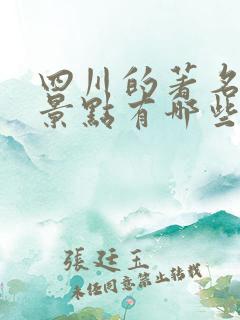 四川的著名
景點有哪些
張廷玉
未任同意禁止转载